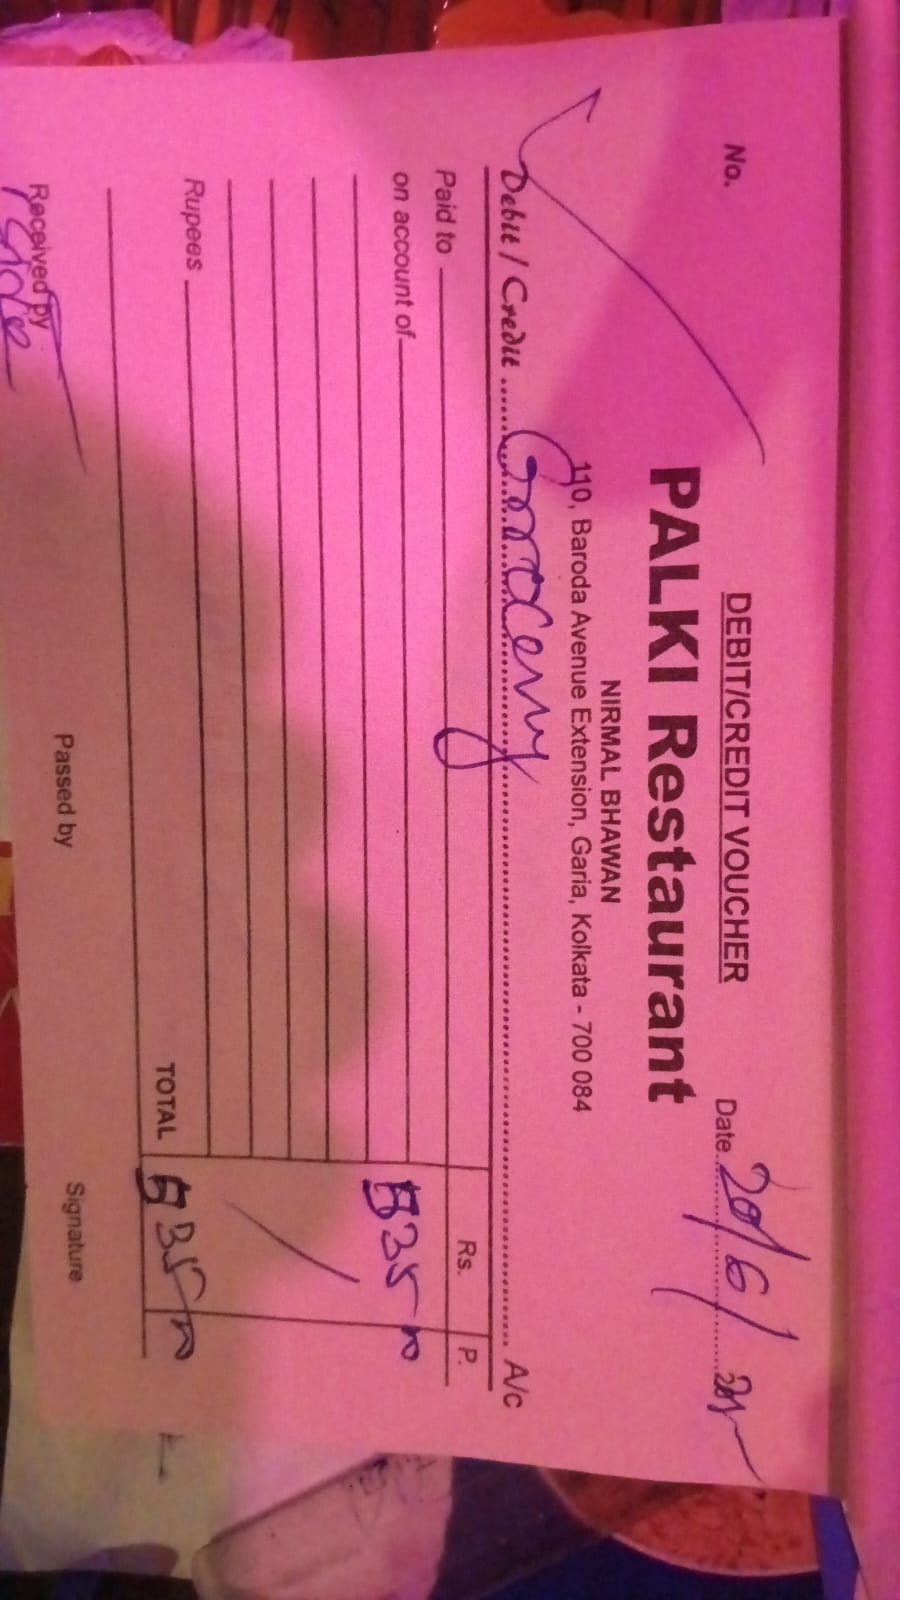 DEBIT/CREDIT VOUCHER
No. Date 20/6/
PALKI Restaurant
NIRMAL BHAWAN
110, Baroda Avenue Extension, Garia, Kolkata - 700 084
Debit / Credit Grocery A/c
Paid to Rs. P.
on account of 535 00
Rupees
TOTAL 535 00
Received by Passed by Signature